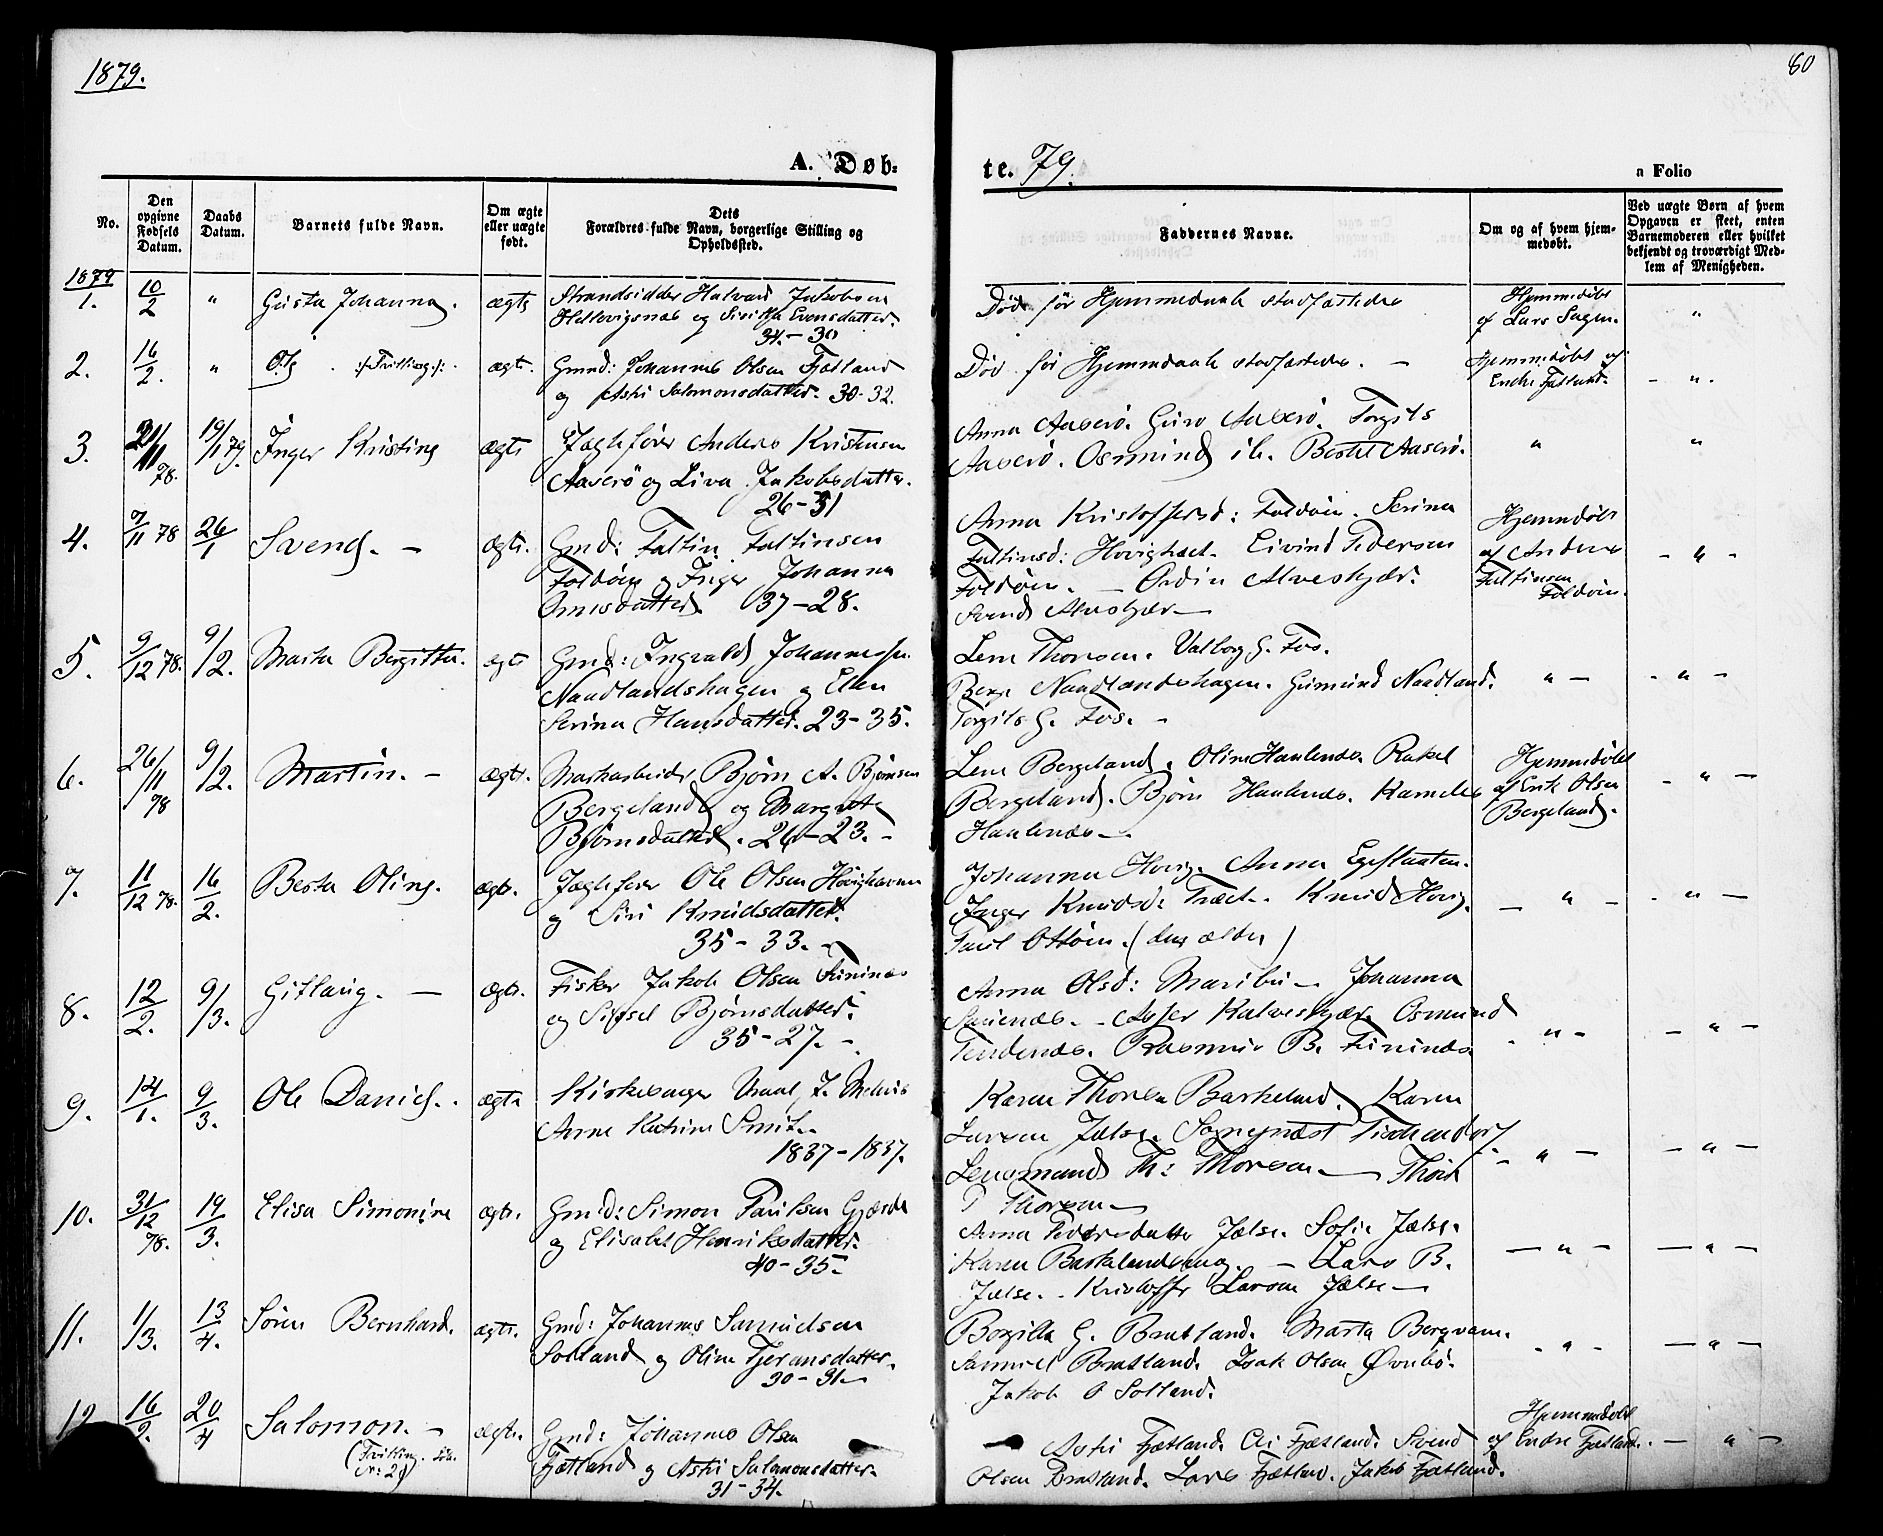 1879.
80
A. Døb-
te. 79.
n Folio
No.
Den opgivne Fødsels Datum.
Daabs Datum.
Barnets fulde Navn.
Om ægte eller uægte født.
Dets Forældres fulde Navn, borgerlige Stilling og Opholdssted.
Faddernes Navne.
Om og af hvem hjemmedøbt.
Ved uægte Børn af hvem Opgaven er skeet, enten Barnemoderen eller hvilket bekjendt og troværdigt Medlem af Menigheden.
1879
1. 10/2 " Gusta Johanna. ægte
Strandsidder Halvard Jakobsen
Hellevigsnæs og Siritha Evensdatter.
34 - 30
Død før Hjemmedaab stadfæstedes
Hjemmedøbt
af Lars Sagen. "
2. 16/2. " Ole :/Trilling/: ægte.
Gmd: Johannes Olsen Fjætland
og Astri Salomonsdatter. 30-32.
Død før Hjemmedaab stadfæstedes. -
Hjemmedøbt af
Endre Fjætland. - " -
3. 21/11 78. 19/1 79. Inger Kristine ægte
Jægtefører Anders Kristensen
Aaserø og Liva Jakobsdatter.
26-31
Anna Aaserø. Guro Aaserø. Torgils
Aaserø. Osmund ib. Bertel Aaserø. " "
4. 7/11 78 26/1 Svend. - ægte.
Gmd: Faltin Faltinsen
Foldøen og Inger Johanna
37-28.
Anna Kristoffersd: Foldøen. Serina
Faltinsd: Eivind Pedersen
Foldøen. - Alveskjær.
Svend Alveskjær -
Hjemmedøbt
af Anders
Faltinsen
Foldøen. - " -
5. 9/12 78. 9/2. Marta Bergitta. ægte
Gmd: Ingvald Johannessen
Naadlandshagen og Elen
Serina Hansdatter. 23-35.
Lene Thorsen. Valborg G. Fos.
Berge Naadlandshagen. Gumund Naadland.
Torgils G. Fos. -
" - - " -
6. 26/11 78 9/2. Martin. - ægte.
Bjørn A. Bjørnsen
Bergeland og Margrete
Bjørnsdatter. 26-23. -
Lene Bergeland. Oline Haalenæs. Rakel
Bergeland. Bjørn Haalenæs. Kornelius
Haalenæs -
Hjemmedøbt
af Erik Olsen
Bergeland. - " -
7. 11/12 78. 16/2. Berta Oline. ægte.
Jægtefører Ole Olsen Hovighavnen
og Siri Knudsdatter.
35-33. -
Johanna Hovig. Anna
Inger Knudsd. Træet. Knud Hovig.
Paul Ottøen. (den ældre)
- " - - " -
8. 12/2. 9/3. Gitlaug. - ægte.
Fisker Jakob Olsen Fininæs
og Sissel Bjørnsdatter.
35-27. -
Anna Olsd: Maribu - Johanna
Sauenæs. - Kalveskjær. Osmund
Tendenæs. Rasmus B. Fininæs
- " - - " -
9. 14/1. 9/3. Ole Daniel. ægte
Kirkesanger
Anne Katrine Smith.
1837-1837.
Karen Thorsen Barkeland. Karen
Larsen Jelse. Sogneprest Tischendorf
Lensmand Th: Thorsen -
Thorsen -
- " - - " -
10. 31/12 78. 19/3. Elisa Simonine ægte.
Gmd: Simon Paulsen Gjærde
og Elisabet Henriksdatter.
40-35.
Anna Pedersdatter Jelse. Sofie Jelse.
Karen - Lars B.
Jelse. - Kristoffer Larsen Jelse -
- " - - " -
11. 1/3. 13/4. Søren Bernhard. ægte.
Gmd: Johannes Samuelsen
Solland og Oline Tjeransdatter.
30-31 -
Bergitta G. Bratland. Marta Bergvam.
Samuel Bratland. Isak Olsen Øvrebø.
Jakob O Solland.
- " - - " -
12. 16/2. 20/4 Salomon. - ægte.
(Trilling. No: 2)
Gmd: Johannes Olsen
Fjætland og Astri Salomonsdatter.
31-34.
Astri Fjætland. Fjætland. Svend
Olsen Bratland. Lars Fjætland. Jakob Fjætland.
Hjemmedøbt
af Endre Fjætland. - " -